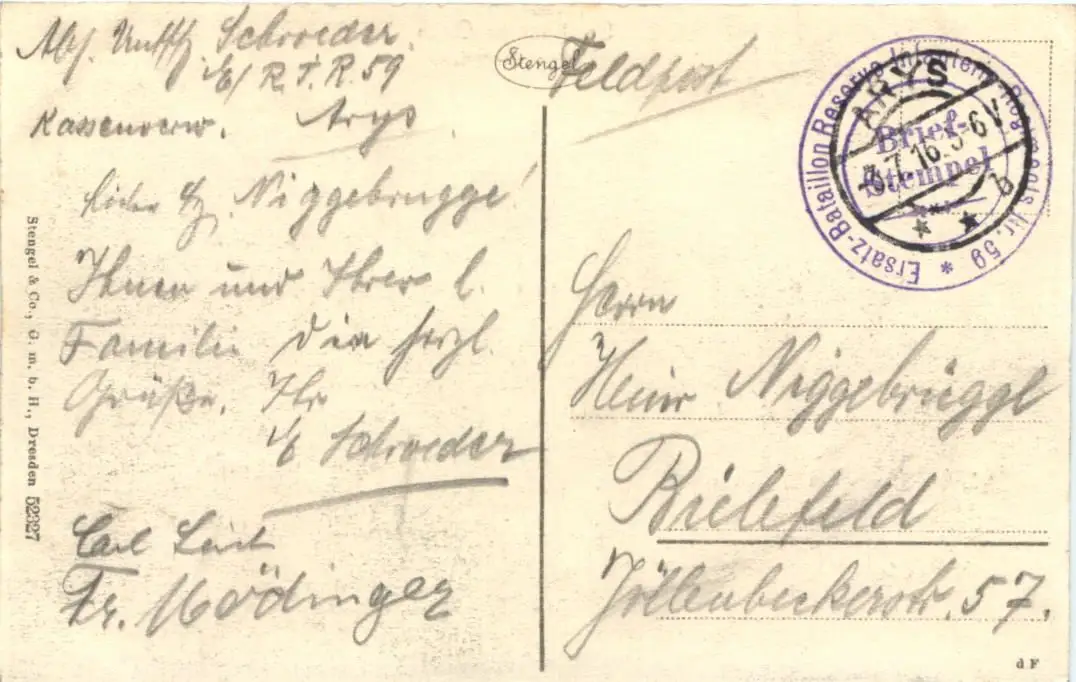 Abs. Unttffz Schroeder.
E/R.I.R. 59
Kassenverw. Arys.
Feldpost
Stengel
Ersatz-Bataillon Reserve-Infanterie-Regiments Nr. 59 *
Brief-
Stempel
ARYS
7.16. 5-6 V
b
Lieber Niggebrügge!
Ihnen und Ihrer l.
Familie die herzl.
Grüße. Ihr
Schroeder
Carl
Fr. Mödinger
Herrn
Heinr Niggebrügge
Bielefeld
Jöllenbeckerstr. 57.
Stengel & Co., G. m. b. H., Dresden 52327
d F